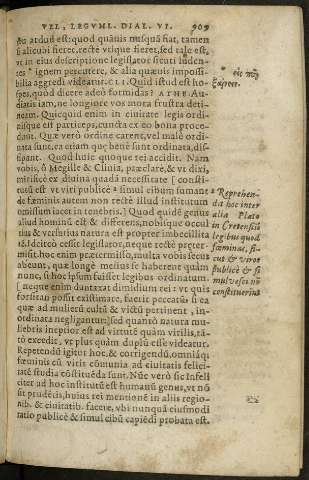 VEL, LEGVM. DIAL. VI. 909
Ac arduū est: quod quanuis nusquā fiat, tamen
si alicubi fieret, recte vtique fieret, sed tale est,
vt in eius descriptione legislator sicuti luden-
tes ignem percutere, & alia quæuis impossi-
bilia aggredi videatur. CLI. Quid istud est ho
spes, quod dicere adeò formidas? ATHE. Au-
diatis iam, ne longiore vos mora frustra deti-
neam. Quicquid enim in ciuitate legis ordi-
nisque est particeps, cuncta ex eo bona proce-
dunt. Quæ verò ordine carent, vel malè ordi-
nata sunt, ea etiam quę benè sunt ordinata, dis-
sipant. Quod huic quoque rei accidit. Nam
vobis, ô Megille & Clinia, præclarè, & vt dixi,
mirificè ex diuina quadā necessitate [ consti-
tutū est vt viri publicè simul cibum sumant
de fœminis autem non recte illud institutum
omissum iacet in tenebris.] Quod quidē genus
aliud hominū est & differens, nobisque occul
tius & versutius natura est propter imbecillita
tē. Idcircò cessit legislator, neque rectè prȩter-
misit. hoc enim prætermisso, multa vobis secus
abeunt, quæ longè melius se haberent quàm
nunc, si hoc ipsum fuisset legibus ordinatum.
[ neque enim duntaxat dimidium rei: vt quis
forsitan possit existimare, fuerit peccatū si ea
quæ ad mulierū cultū & victū pertinent, in-
ordinata negligantur:] sed quantò natura mu-
liebris ineptior est ad virtutē quàm virilis, tā-
tò excedit, vt plus quàm duplū esse videatur.
Repetendū igitur hoc, & corrigendū, omniaq;
fœminis cū viris cōmunia ad ciuitatis felici-
tatē studia cōstituēda sunt. Nūc verò sic infeli
citer ad hoc institutū est humanū genus, vt nō
sit prudētis, huius rei mentionē in aliis regio-
nib. & ciuitatib. facere, vbi nunquā eiusmodi
ratio publicè & simul cibū capiēdi probata est.
εἰς πῦρ
ξαίνειν.
Reprehen-
da hoc inter
alia Plato
in Cretensiū
legibus quod
fœminae, si-
cut & viros
publicè & si
mul vesci nō
constituerint